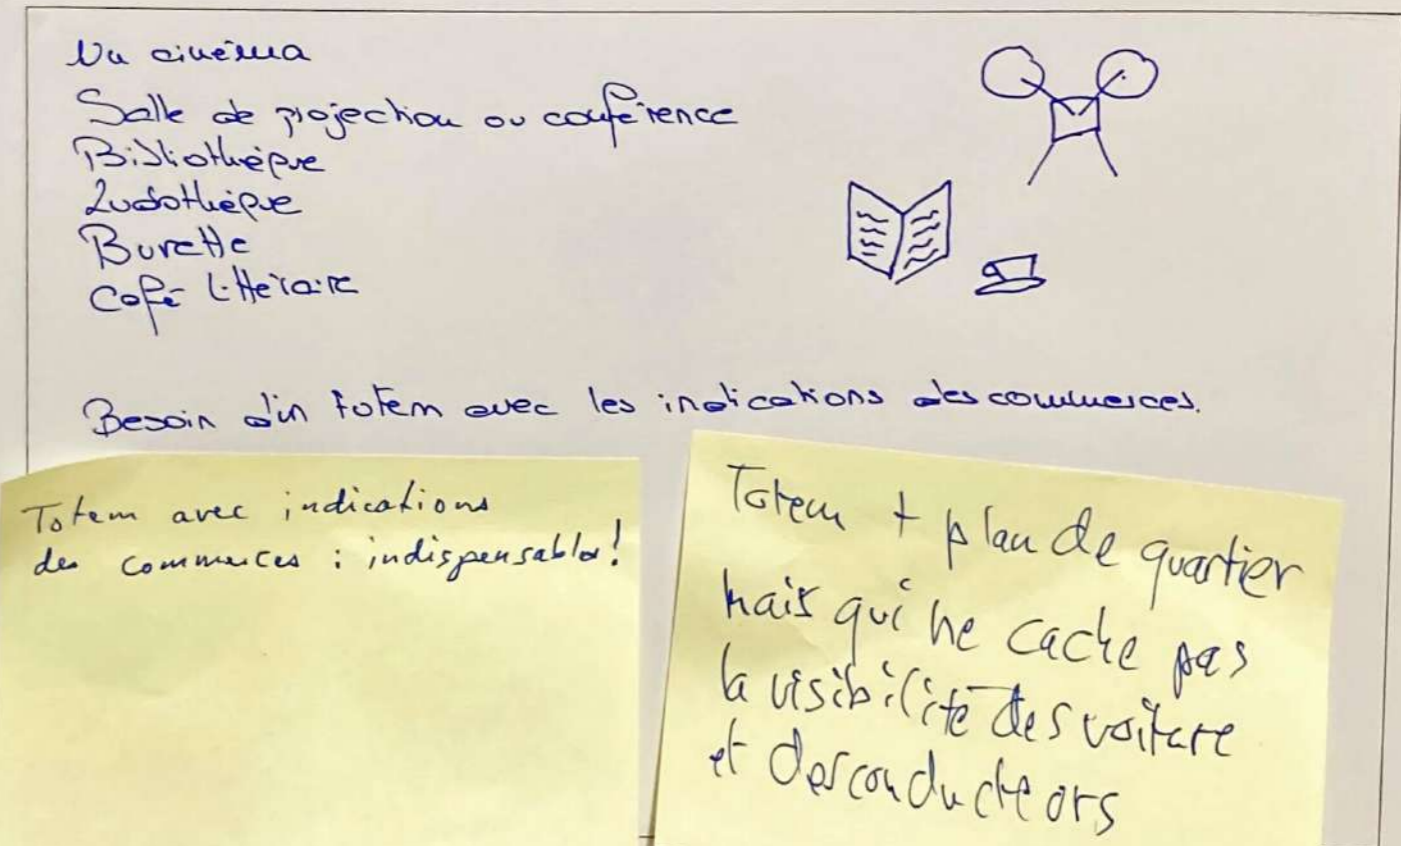 Un cinéma
Salle de projection ou conférence
Bibliothèque
Ludothèque
Buvette
Café littéraire
Besoin d'un totem avec les indications des commerces.
Totem avec indications
des commerces : indispensable !
Totem + plan de quartier
mais qui ne cache pas
la visibilité des voiture
et des conducteurs